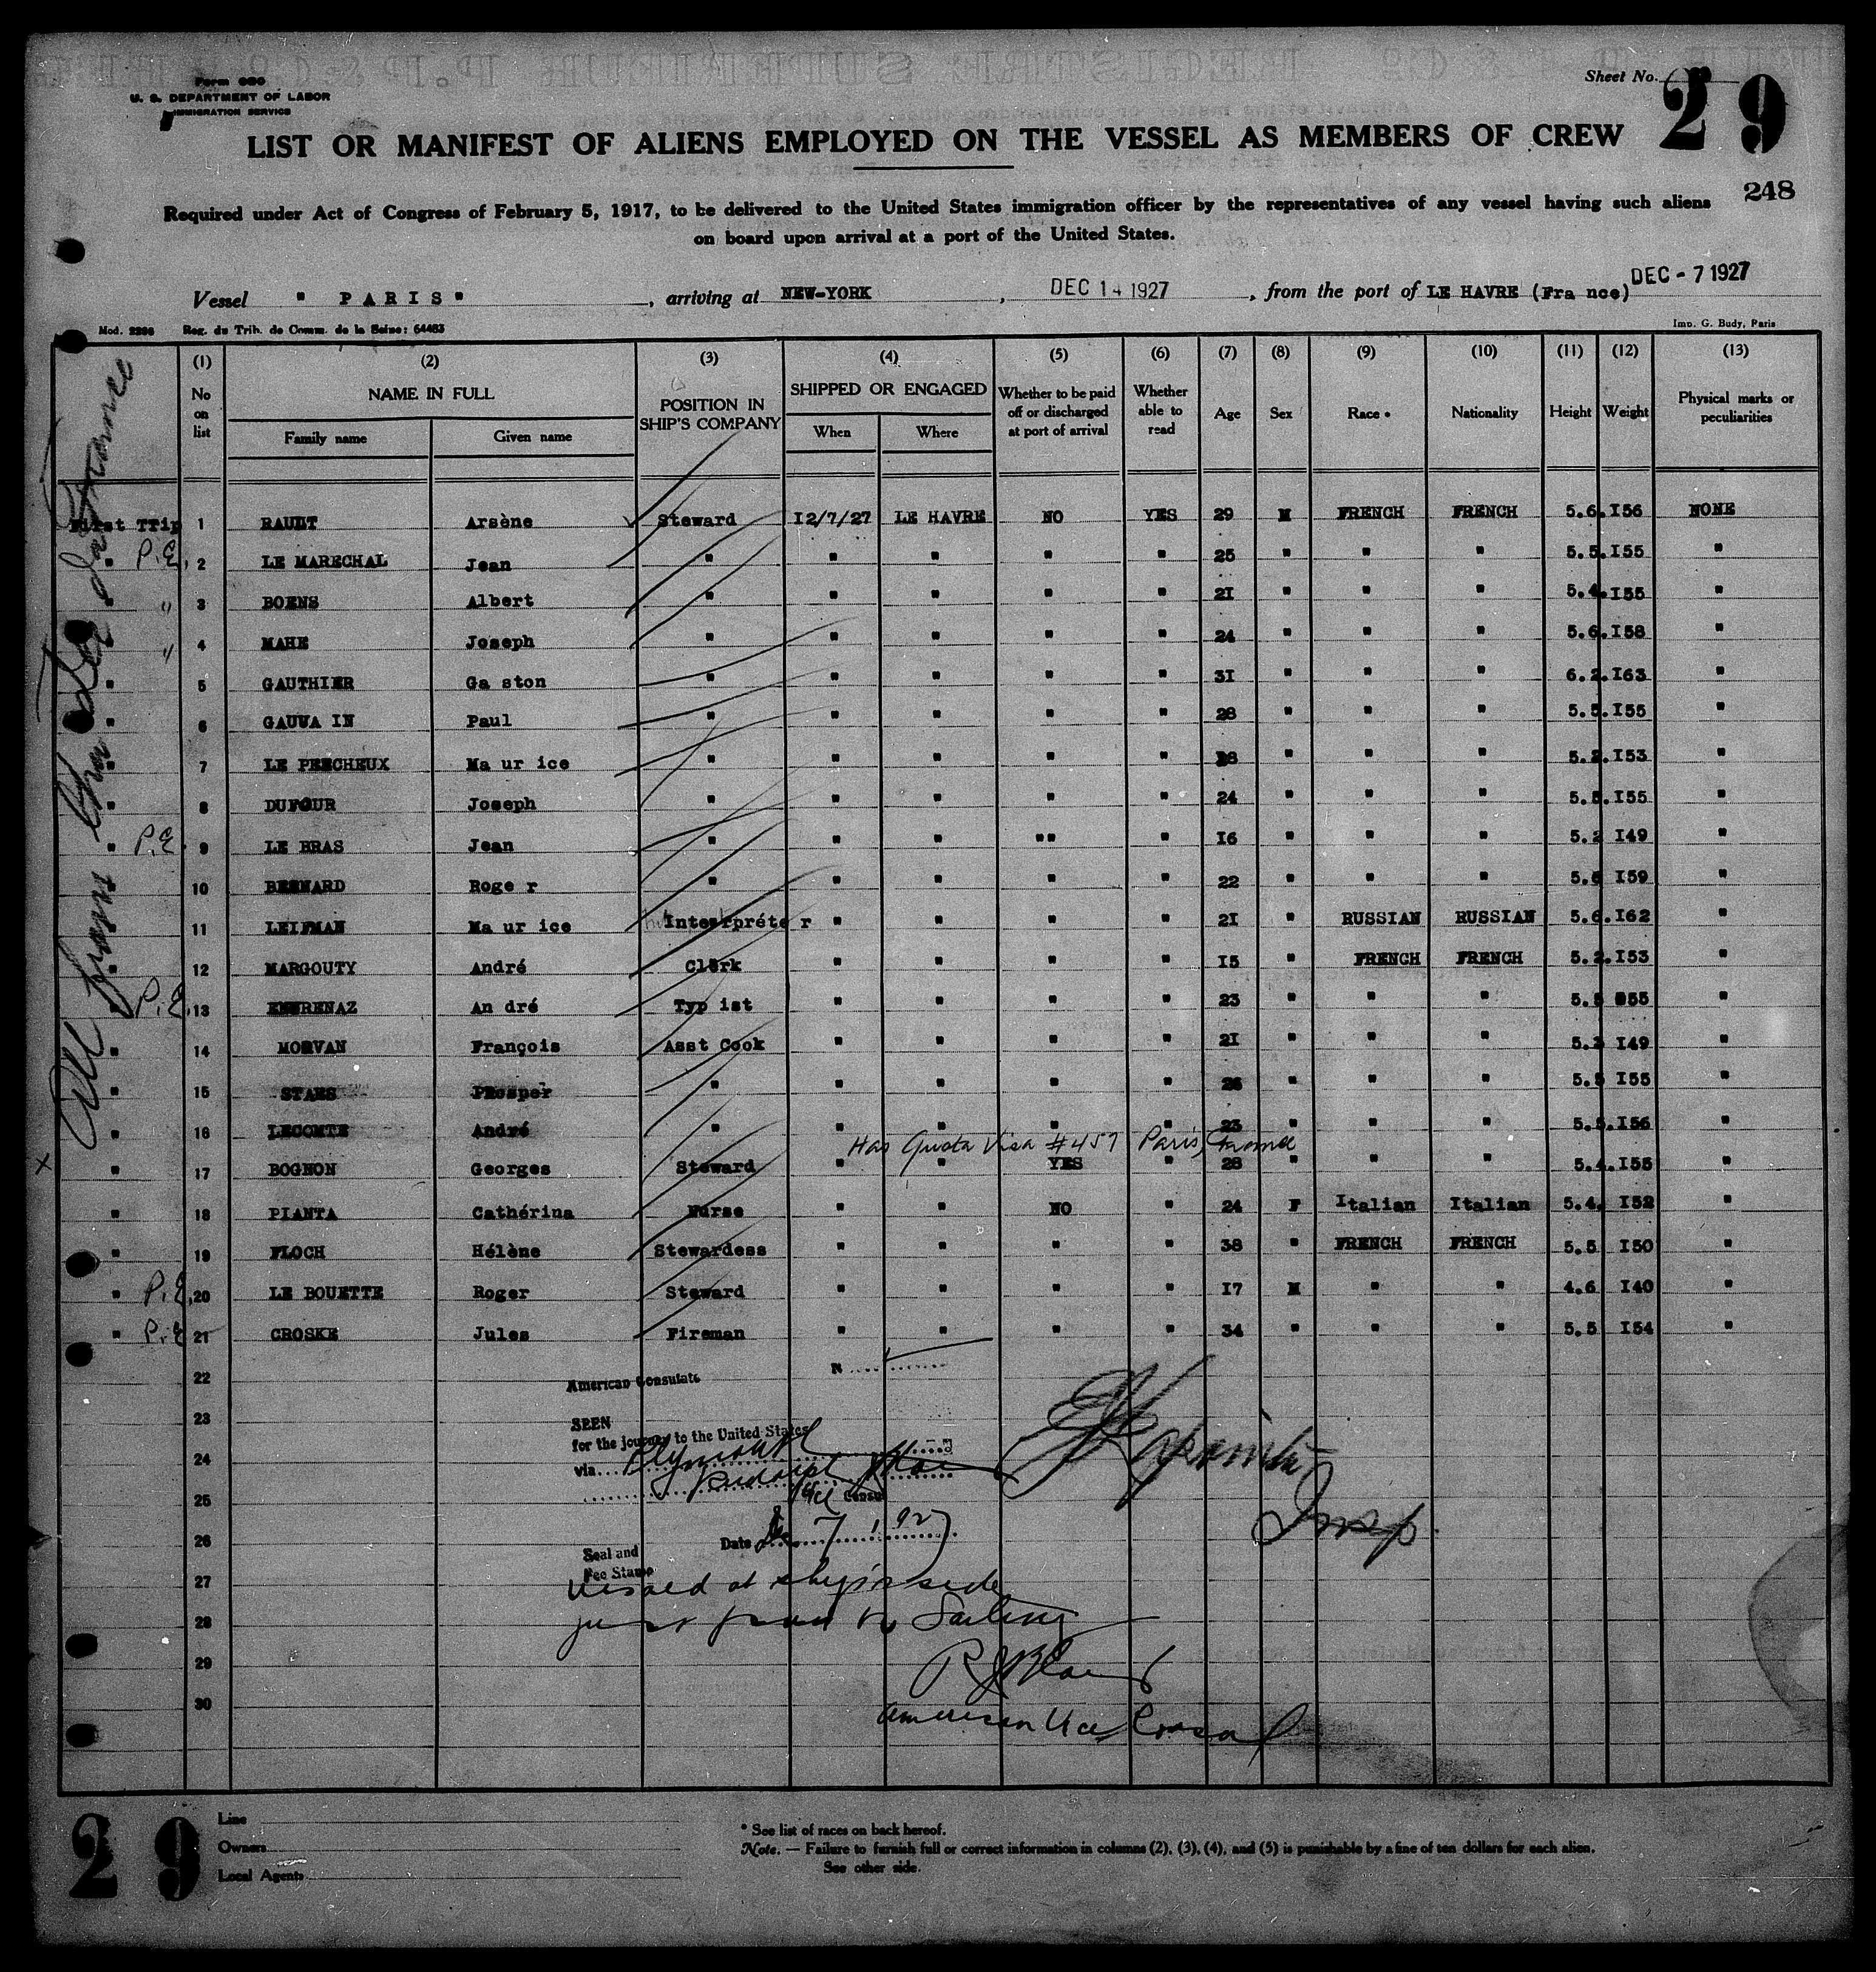 Form 680
U. S. DEPARTMENT OF LABOR
IMMIGRATION SERVICE
Sheet No. 29
LIST OR MANIFEST OF ALIENS EMPLOYED ON THE VESSEL AS MEMBERS OF CREW
248
Required under Act of Congress of February 5, 1917, to be delivered to the United States immigration officer by the representatives of any vessel having such aliens
on board upon arrival at a port of the United States.
Vessel " PARIS" , arriving at NEW-YORK , DEC 14 1927 , from the port of LE HAVRE (Fra nce) DEC - 7 1927
Mod. 2286 Reg. du Trib. de Comm. de la Seine: 64483 Imp. G. Budy, Paris
(1) (2) (3) (4) (5) (6) (7) (8) (9) (10) (11) (12) (13)
No on list NAME IN FULL Family name Given name POSITION IN SHIP'S COMPANY SHIPPED OR ENGAGED When Where Whether to be paid off or discharged at port of arrival Whether able to read Age Sex Race * Nationality Height Weight Physical marks or peculiarities
First TTip 1 RAULT Arsène Steward I2/7/27 LE HAVRE NO YES 29 M FRENCH FRENCH 5.6. I56 NONE
" P.E. 2 LE MARECHAL Jean " " " " " 25 " " " 5.5. I55 "
" " 3 BOENS Albert " " " " " 2I " " " 5.4. I55 "
" 4 MAHE Joseph " " " " " 24 " " " 5.6. I58 "
" 5 GAUTHIER Ga ston " " " " " 3I " " " 6.2. I63 "
" 6 GAUVA IN Paul " " " " " 28 " " " 5.5. I55 "
" 7 LE PRECHEUX Ma ur ice " " " " " " " " 5.2. I53 "
" 8 DUFOUR Joseph " " " " " 24 " " " 5.5. I55 "
" P.E. 9 LE BRAS Jean " " " "" " I6 " " " 5.2 I49 "
10 BESNARD Roge r " " " " " 22 " " " 5.6 I59 "
" 11 LEIFMAN Ma ur ice Interpréte r " " " " 2I " RUSSIAN RUSSIAN 5.6. I62 "
" 12 MARGOUTY André Clerk " " " " I5 " FRENCH FRENCH 5.2. I53 "
P.E. 13 An dré Typ ist " " " " 23 " " " 5.5 "
" 14 MORVAN François Asst Cook " " " " 2I " " " 5.3 I49 "
" 15 STAES Prosper " " " " " 26 " " " 5.5 I55 "
" 16 LECOMTE André " " " " " 23 " " " 5.5. I56 "
Has Quota Visa #457 Paris, France
X " 17 BOGNON Georges Steward " " YES " 28 " " " 5.4. I55 "
" 18 PIANTA Cathérina Nurse " " NO " 24 F Italian Italian 5.4. I52 "
" 19 FLOCH Hélène Stewardess " " " " 38 " FRENCH FRENCH 5.5 I50 "
" P.E. 20 LE BOUETTE Roger Steward " " " " I7 M " " 4.6 I40 "
" P.E. 21 CROSKE Jules Fireman " " " " 34 " " " 5.5 I54 "
22
23
24
25
26
27
28
29
30
All from
N
American Consulate
SEEN
for the journey to the United States
via Plymouth
Rudolph
Vice Consul
Date Dec 7, 1927
Seal and
Fee Stamp
Insp.
Visaed at ship's side
just prior to Sailing
American Vice Consul
29
Line
Owners
Local Agents
* See list of races on back hereof.
Note. — Failure to furnish full or correct information in columns (2), (3), (4), and (5) is punishable by a fine of ten dollars for each alien.
See other side.